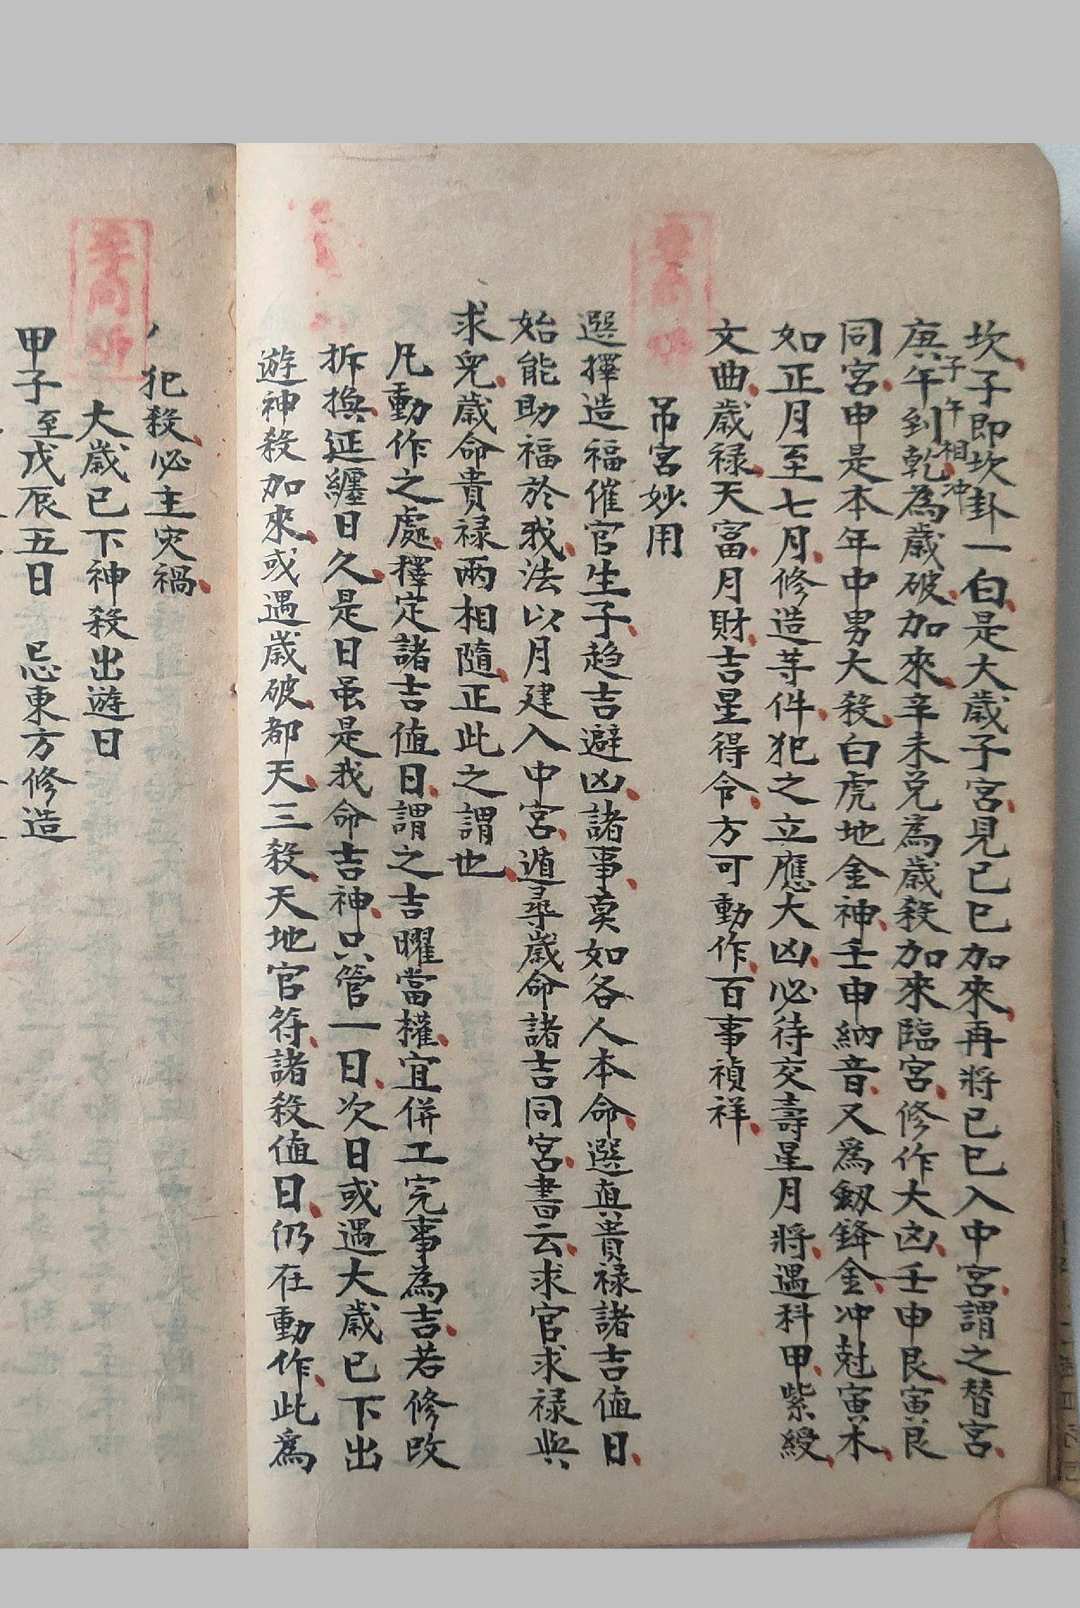 坎子即坎卦一白是大歲子宮見己巳加來再將己巳入中宮謂之替宮
子午相冲
庚午到乾為歲破加來辛未兑為歲殺加來臨宮修作大凶壬申艮寅艮
同宮申是本年中男大殺白虎地金神壬申納音又爲釼鋒金冲尅寅木
如正月至七月修造等件犯之立應大凶必待交壽星月將遇科甲紫綬
文曲歲禄天富月財吉星得令方可動作百事禎祥
吊宮妙用
選擇造福催官生子趋吉避凶諸事莫如各人本命選真貴禄諸吉值日
始能助福於我法以月建入中宮遁尋歲命諸吉同宮書云求官求禄與
求兒歲命貴禄兩相隨正此之謂也
凡動作之處擇定諸吉值日謂之吉曜當權宜併工完事為吉若修改
拆換延纏日久是日虽是我命吉神只管一日次日或遇大歲已下出
遊神殺加來或遇歲破都天三殺天地官符諸殺值日仍在動作此爲
犯殺必主灾禍
大歲已下神殺出遊日
甲子至戊辰五日 忌東方修造